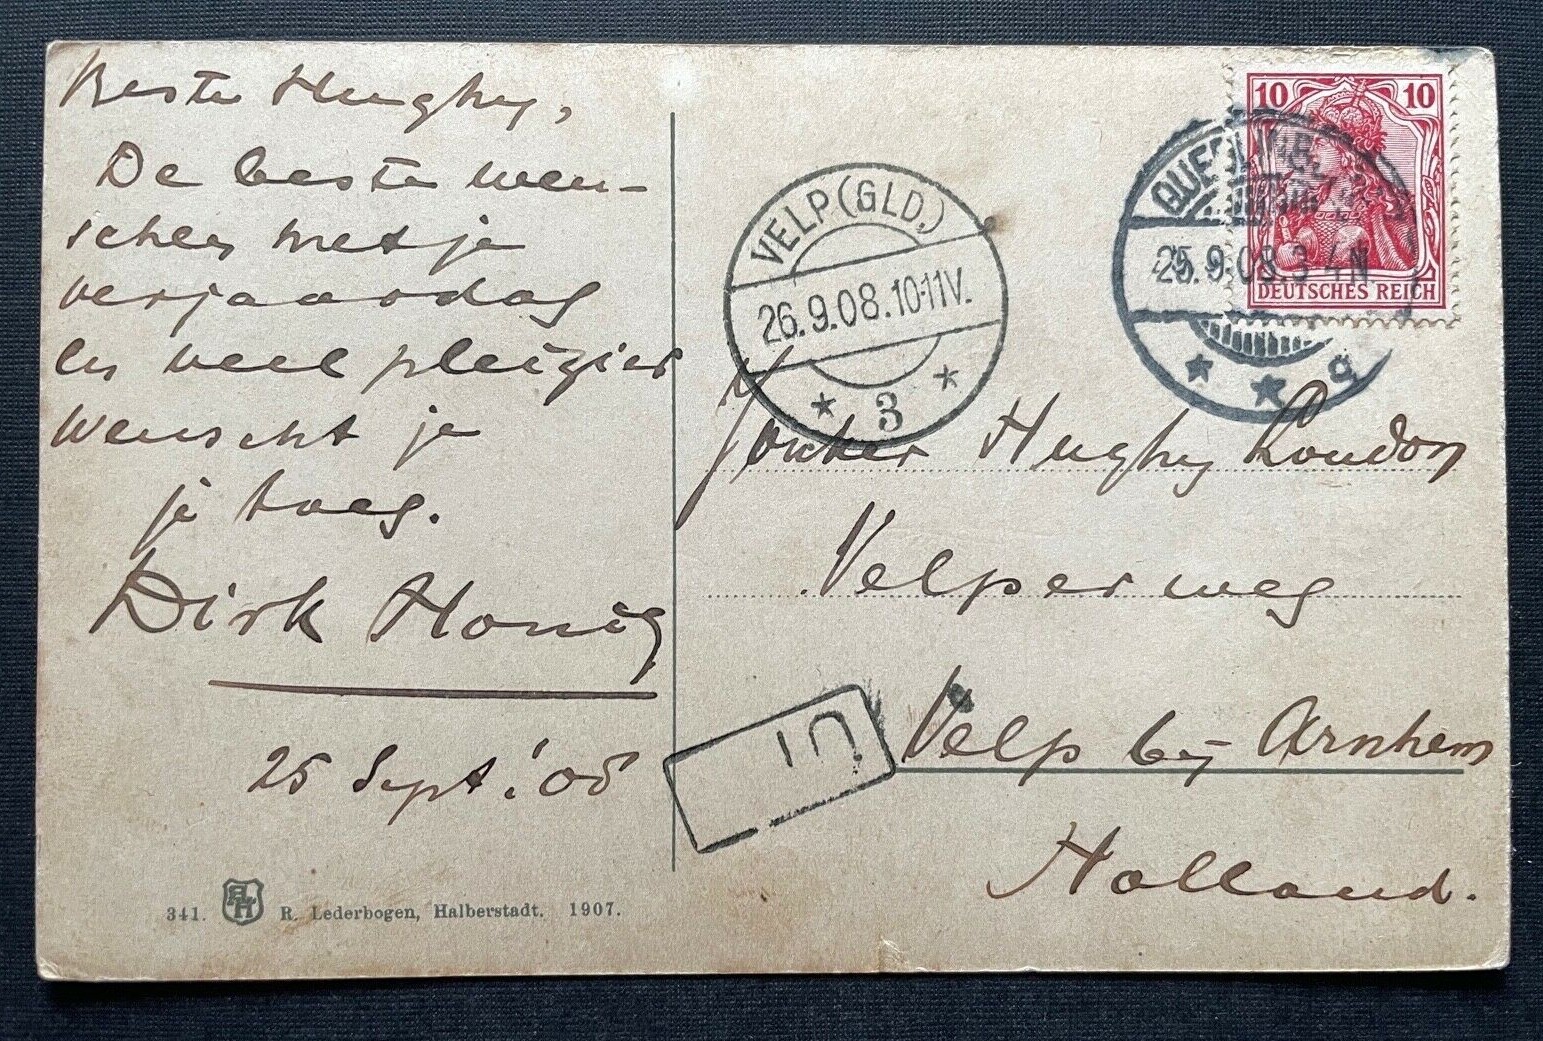 Beste Hughy,
De beste wen-
schen met je
verjaardag
en veel pleizier
wenscht je
je toeg.
Dirk Honig
25 Sept. '08
341. R. Lederbogen, Halberstadt. 1907.
VELP (GLD.)
26.9.08.10-11V.
3
10 10
DEUTSCHES REICH
25.9.08.3-4N
Jonker Hughy Loudon
Velperweg
Velp bij Arnhem
Holland.